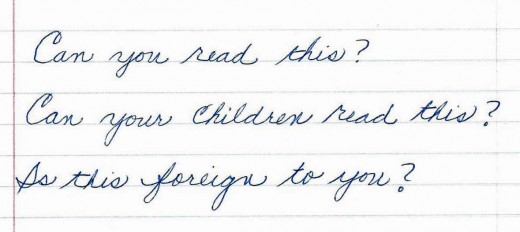 Can you read this?
Can your children read this?
Is this foreign to you?